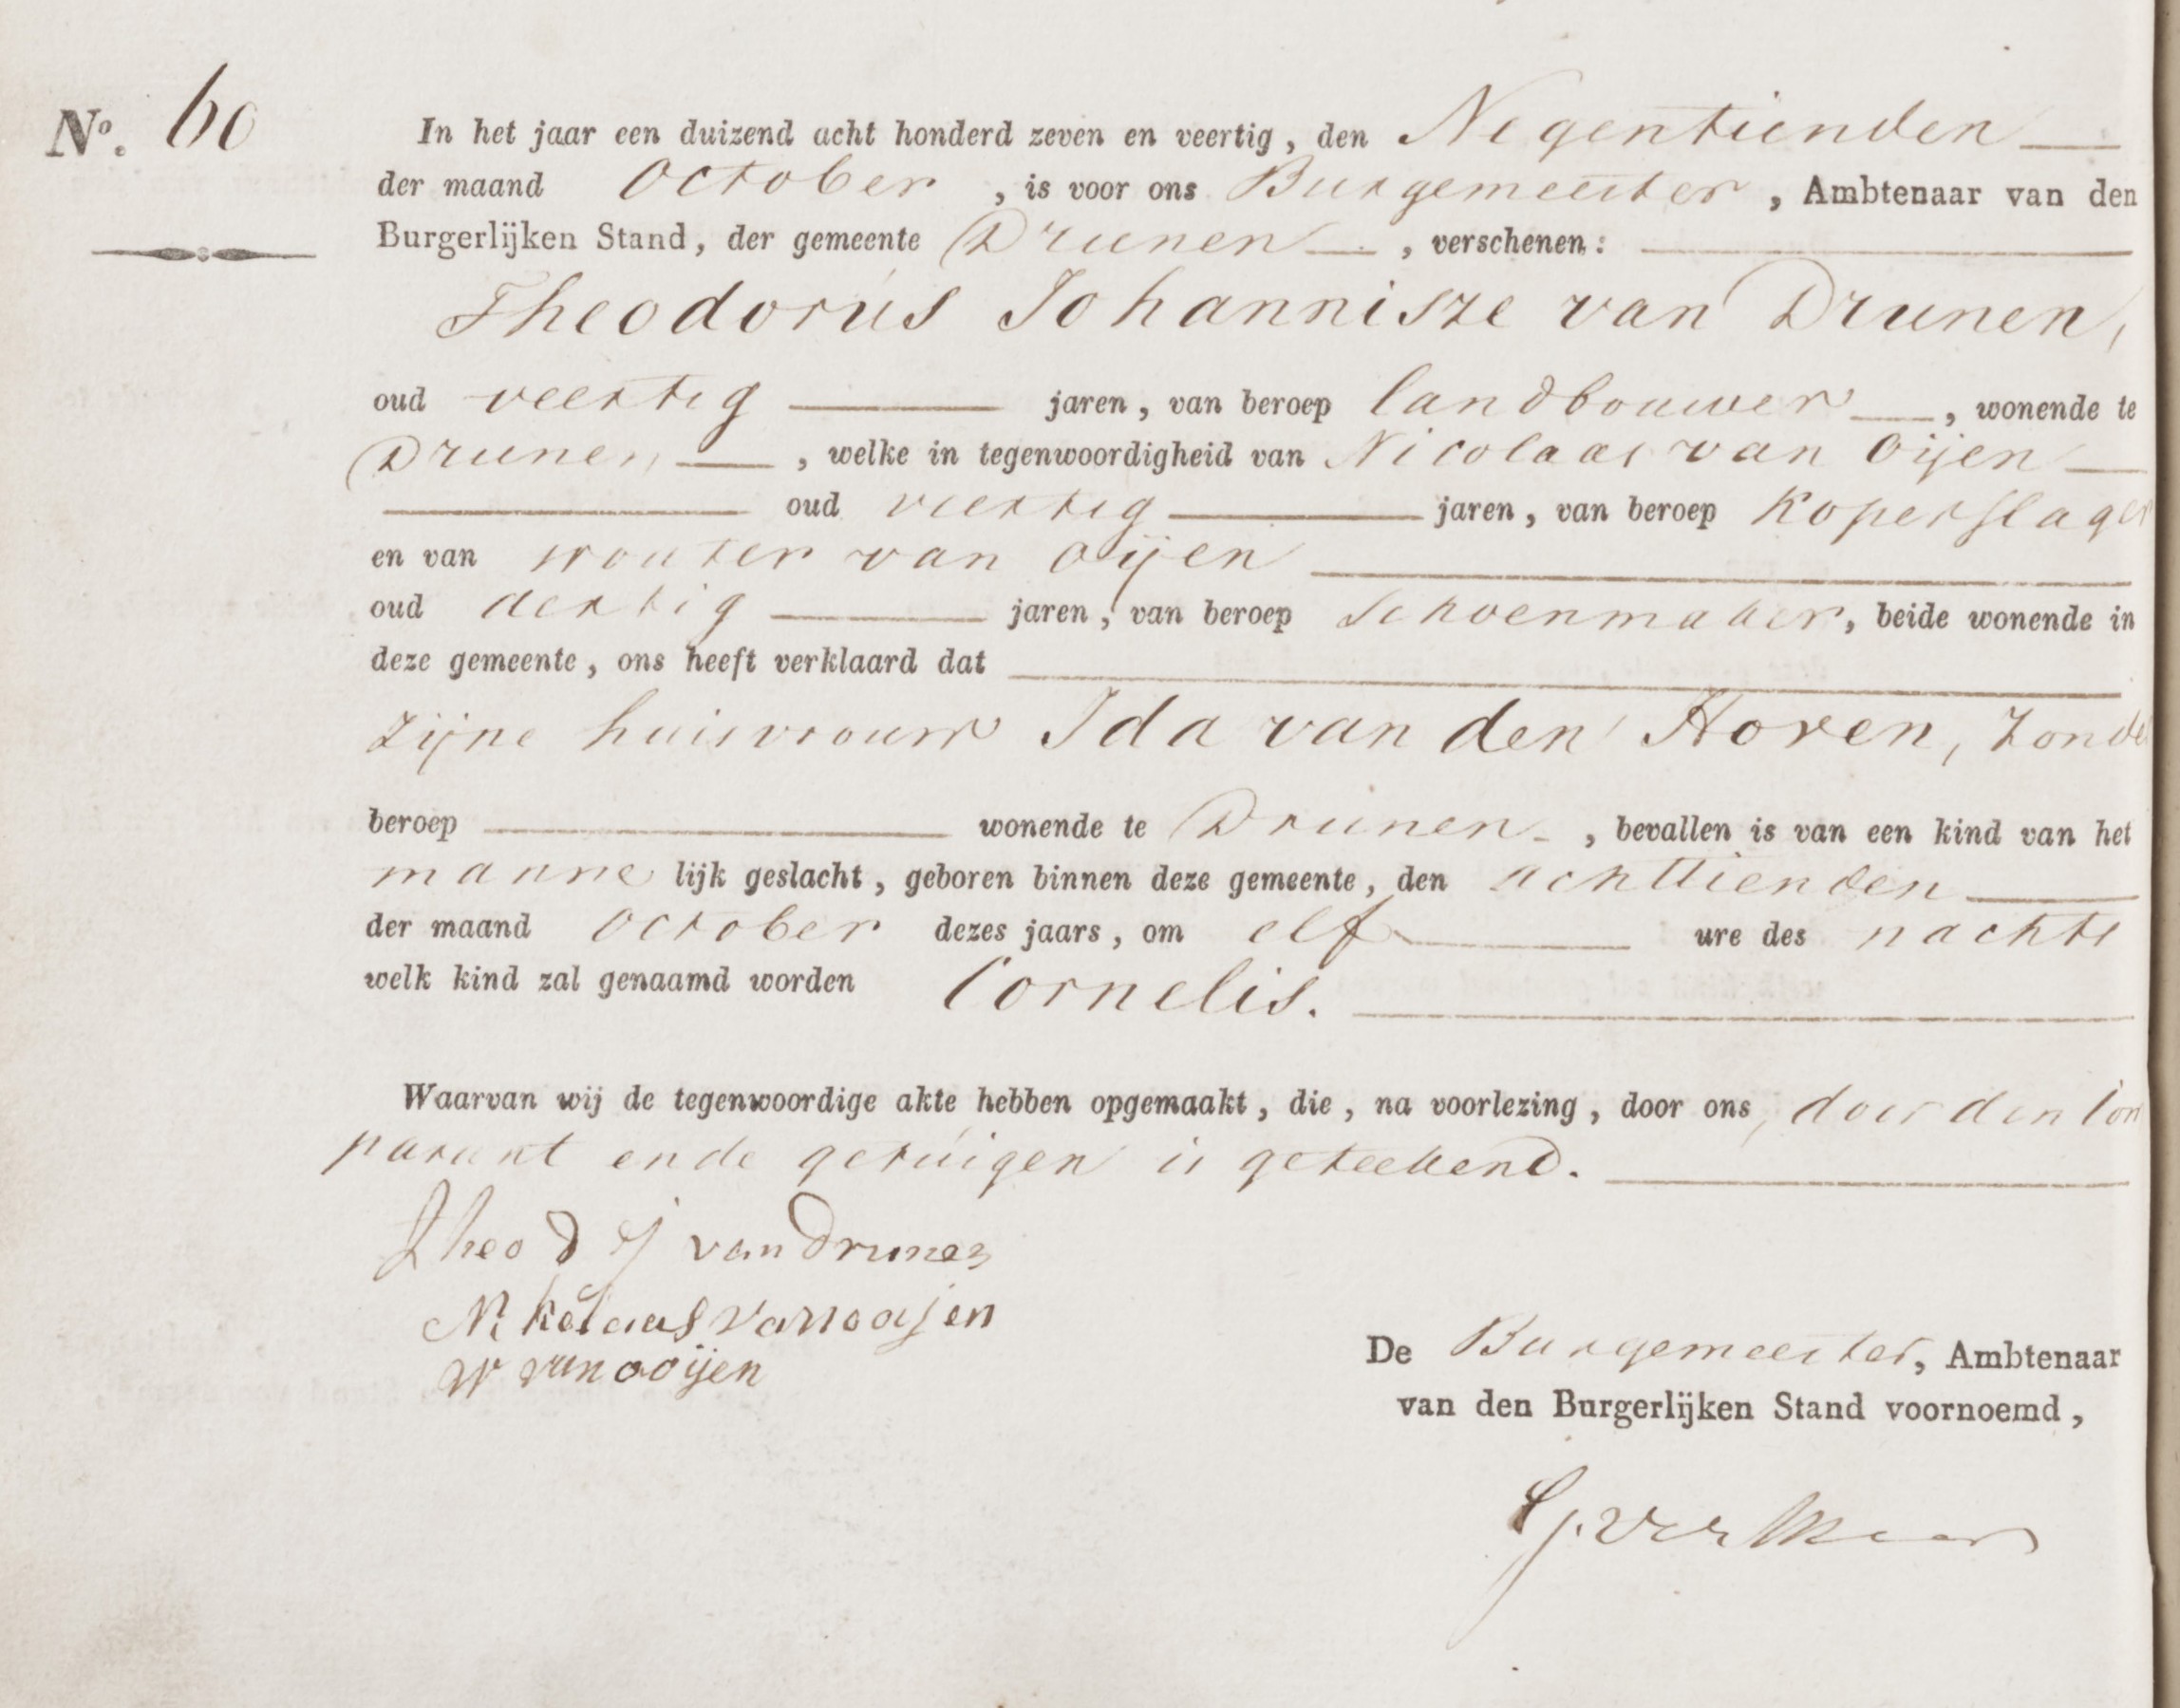 No. 60
In het jaar een duizend acht honderd zeven en veertig, den Negentienden
der maand October, is voor ons Burgemeester, Ambtenaar van den
Burgerlijken Stand, der gemeente Drunen, verschenen:
Theodorus Johannisze van Drunen,
oud veertig jaren, van beroep landbouwer, wonende te
Drunen, welke in tegenwoordigheid van Nicolaas van Oijen
oud veertig jaren, van beroep Koperslager
en van Wouter van Oijen
oud dertig jaren, van beroep Schoenmaker, beide wonende in
deze gemeente, ons heeft verklaard dat
zijne huisvrouw Ida van den Hoven, zonder
beroep wonende te Drunen, bevallen is van een kind van het
mannelijk geslacht, geboren binnen deze gemeente, den achttienden
der maand October dezes jaars, om elf ure des nachts
welk kind zal genaamd worden Cornelis.
Waarvan wij de tegenwoordige akte hebben opgemaakt, die, na voorlezing, door ons, door den Com
parant en de getuigen is geteekend.
Theod J van Drunen
Nikolaas van ooijen
W van ooijen
De Burgemeester, Ambtenaar
van den Burgerlijken Stand voornoemd,